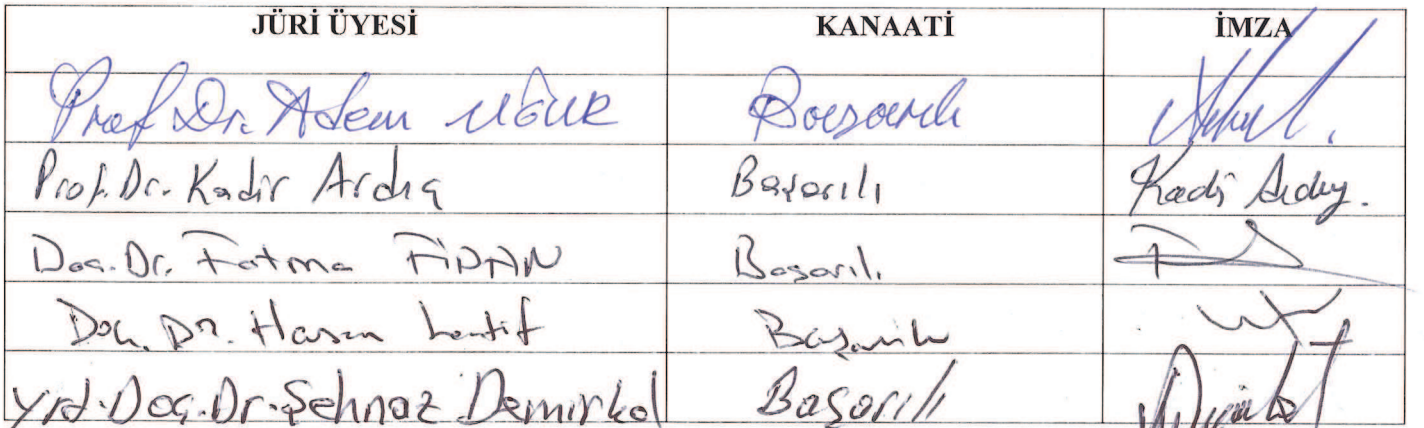 JÜRİ ÜYESİ KANAATİ İMZA
Prof. Dr. Adem UĞUR Başarılı
Prof. Dr. Kadir Ardıç Başarılı Kadir Ardıç.
Doç. Dr. Fatma FİDAN Başarılı
Doç. Dr. Hasan Latif Başarılı
Yrd. Doç. Dr. Şehnaz Demirkol Başarılı